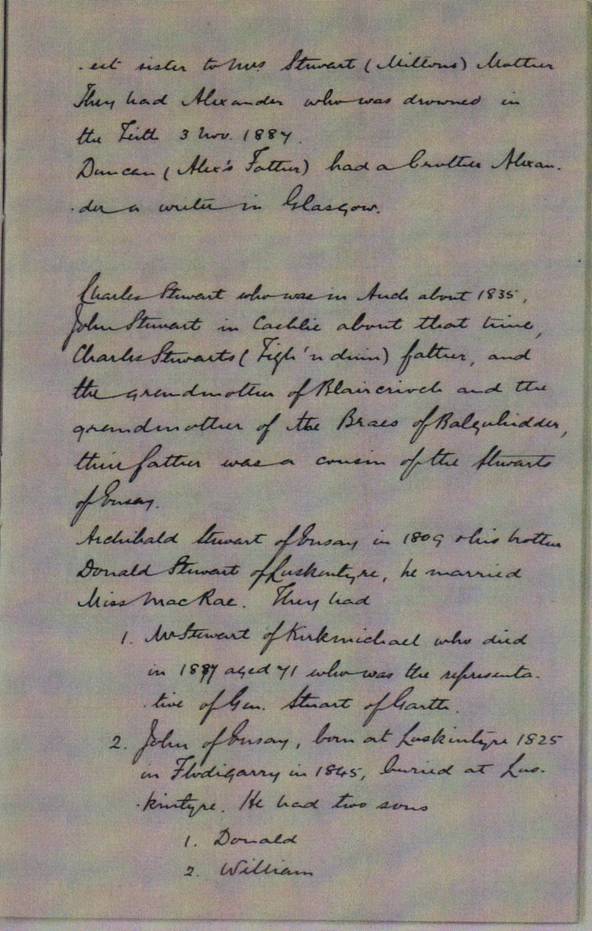 -est sister to Mrs Stewart (Miltons) Mother
They had Alexander who was drowned in
the Teith 3 Nov. 1887.
Duncan (Alex's Father) had a brother Alexan-
-der a writer in Glasgow.
Charles Stewart who was in Auch about 1835,
John Stewart in Cashlie about that time,
Charles Stewarts (Tigh'n druim) father, and
the grandmother of Blaircrioch and the
grandmother of the Braes of Balquhidder,
their father was a cousin of the Stewarts
of Ensay.
Archibald Stewart of Ensay in 1809 & his brother
Donald Stewart of Luskintyre, he married
Miss MacRae. They had
1. Mr Stewart of Kirkmichael who died
in aged 71 who was the representa-
-tive of Gen. Stuart of Garth.
2. John of Ensay, born at Luskintyre 1825
in Flodigarry in 1845, buried at Lus-
-kintyre. He had two sons
1. Donald
2. William